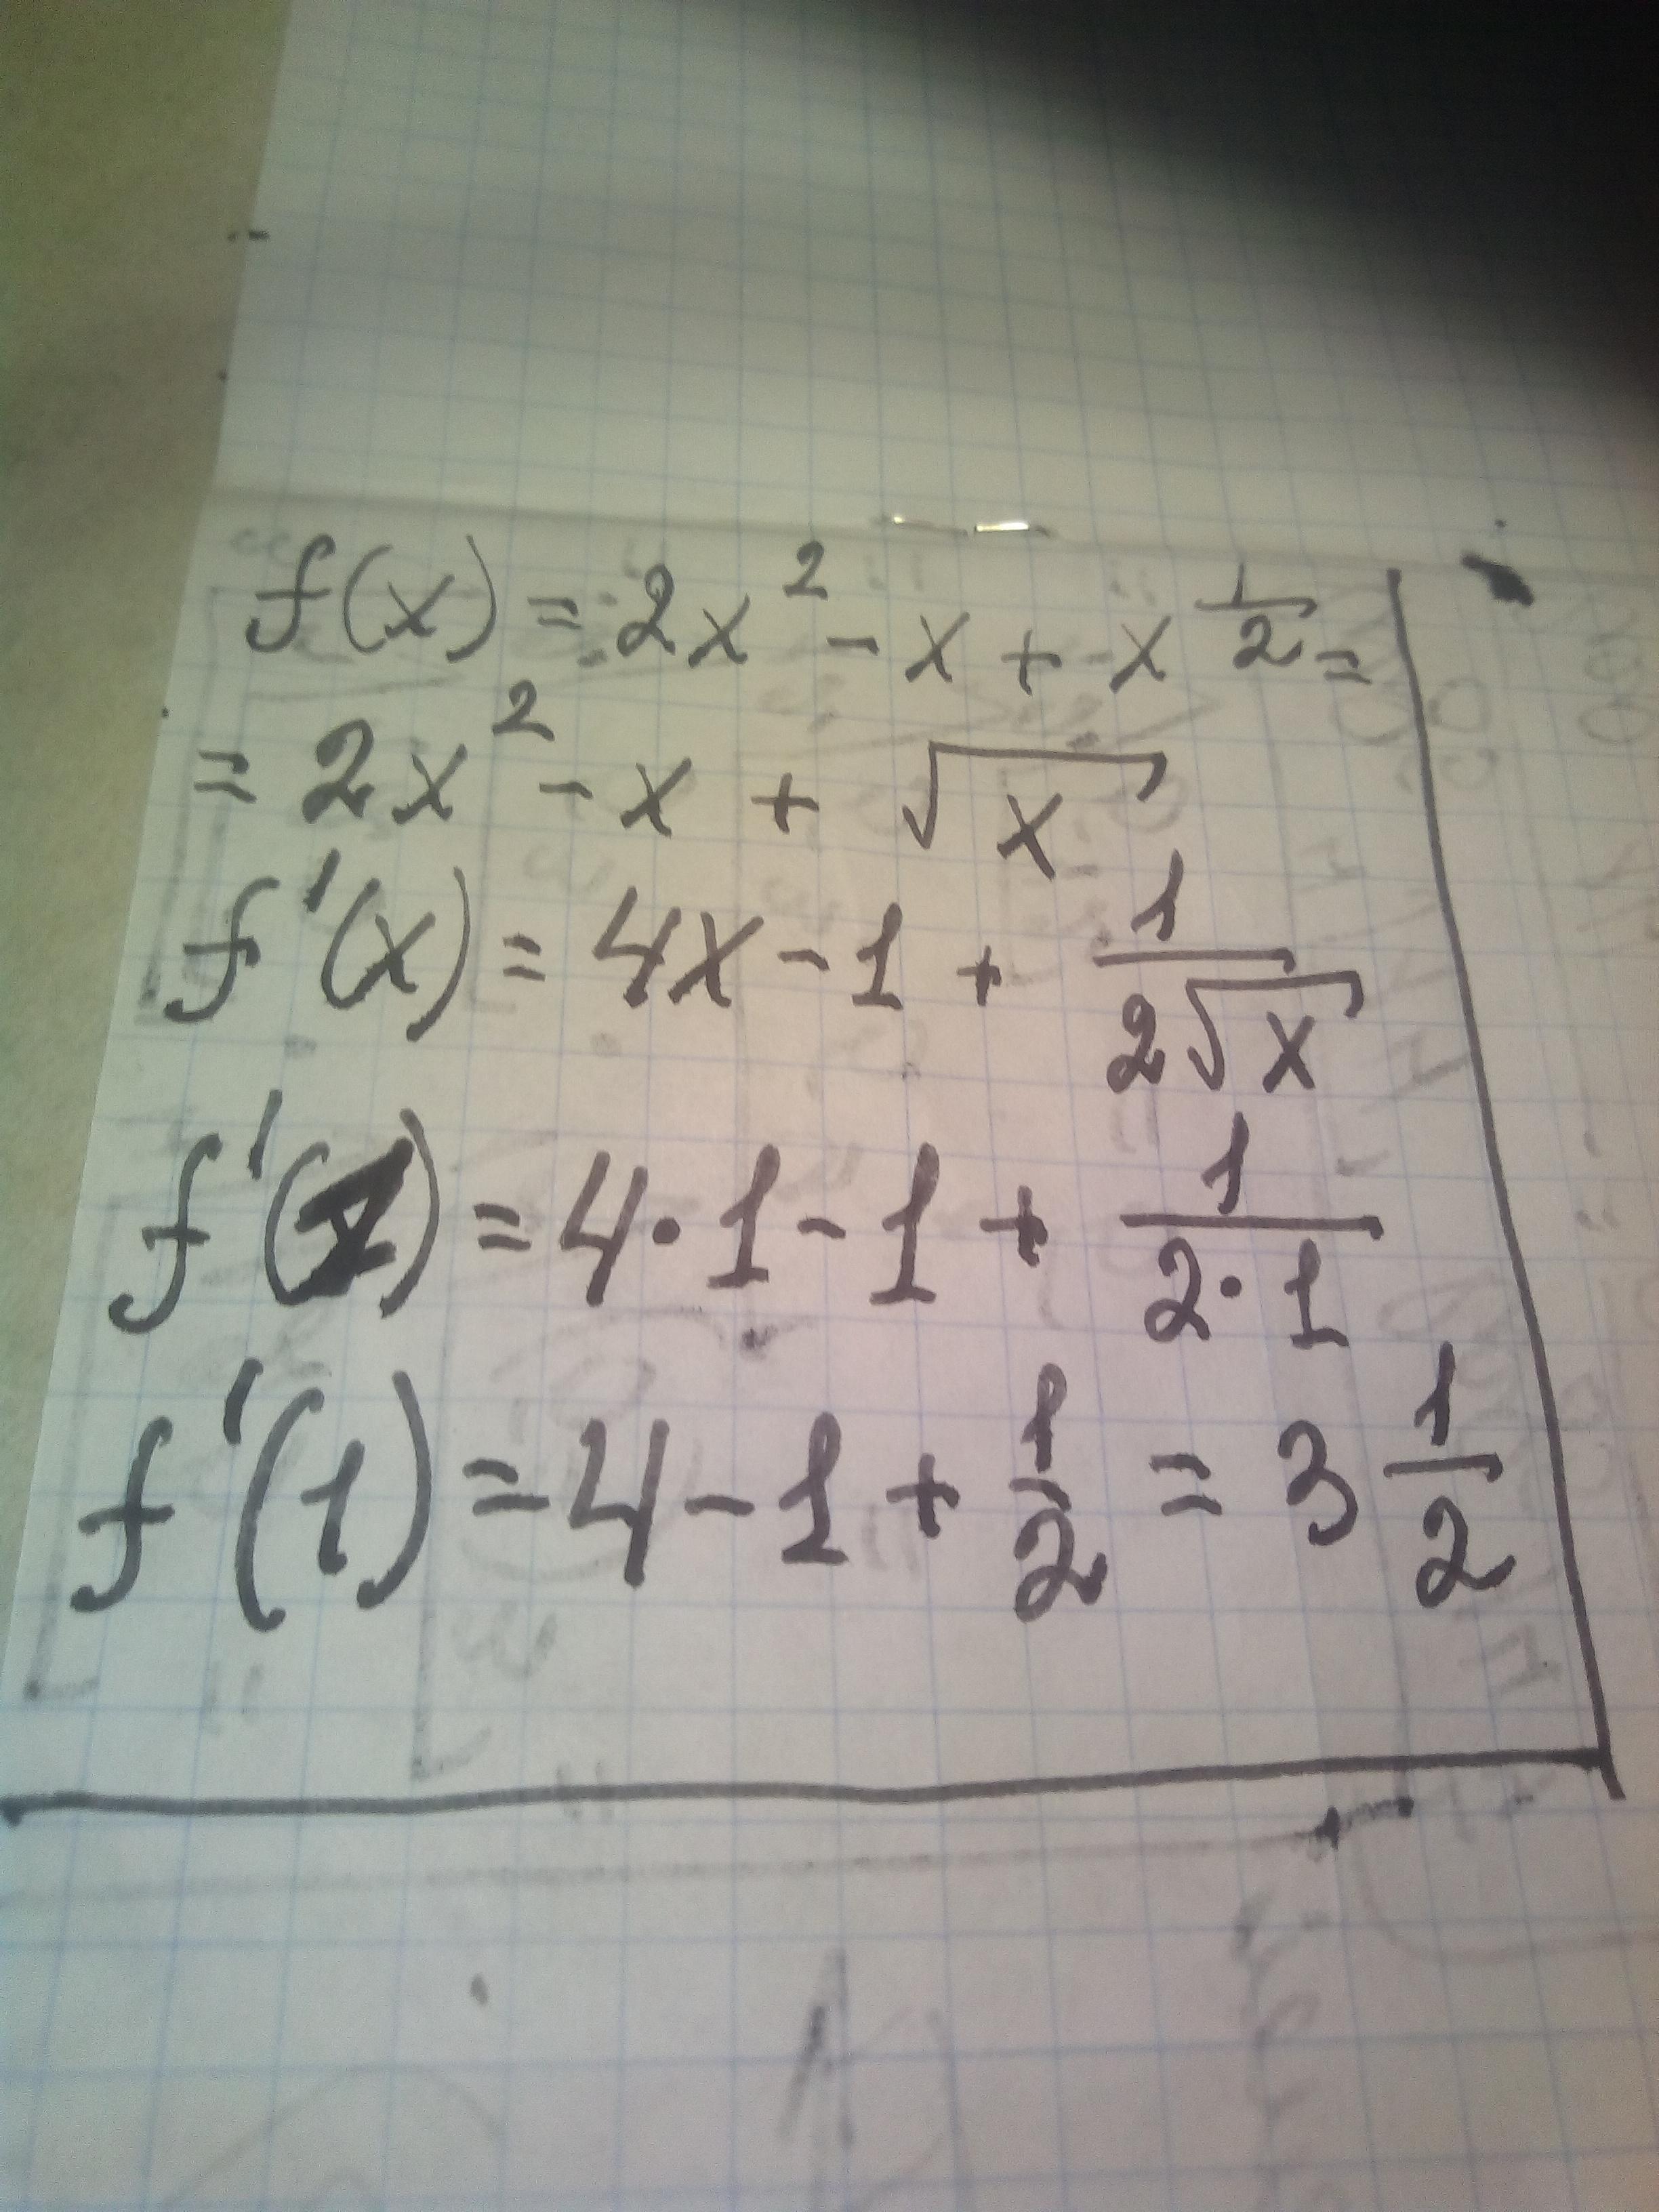 f(x) = 2x² - x + x^(1/2) =
= 2x² - x + √x
f'(x) = 4x - 1 + 1/(2√x)
f'(1) = 4·1 - 1 + 1/(2·1)
f'(1) = 4 - 1 + 1/2 = 3 1/2